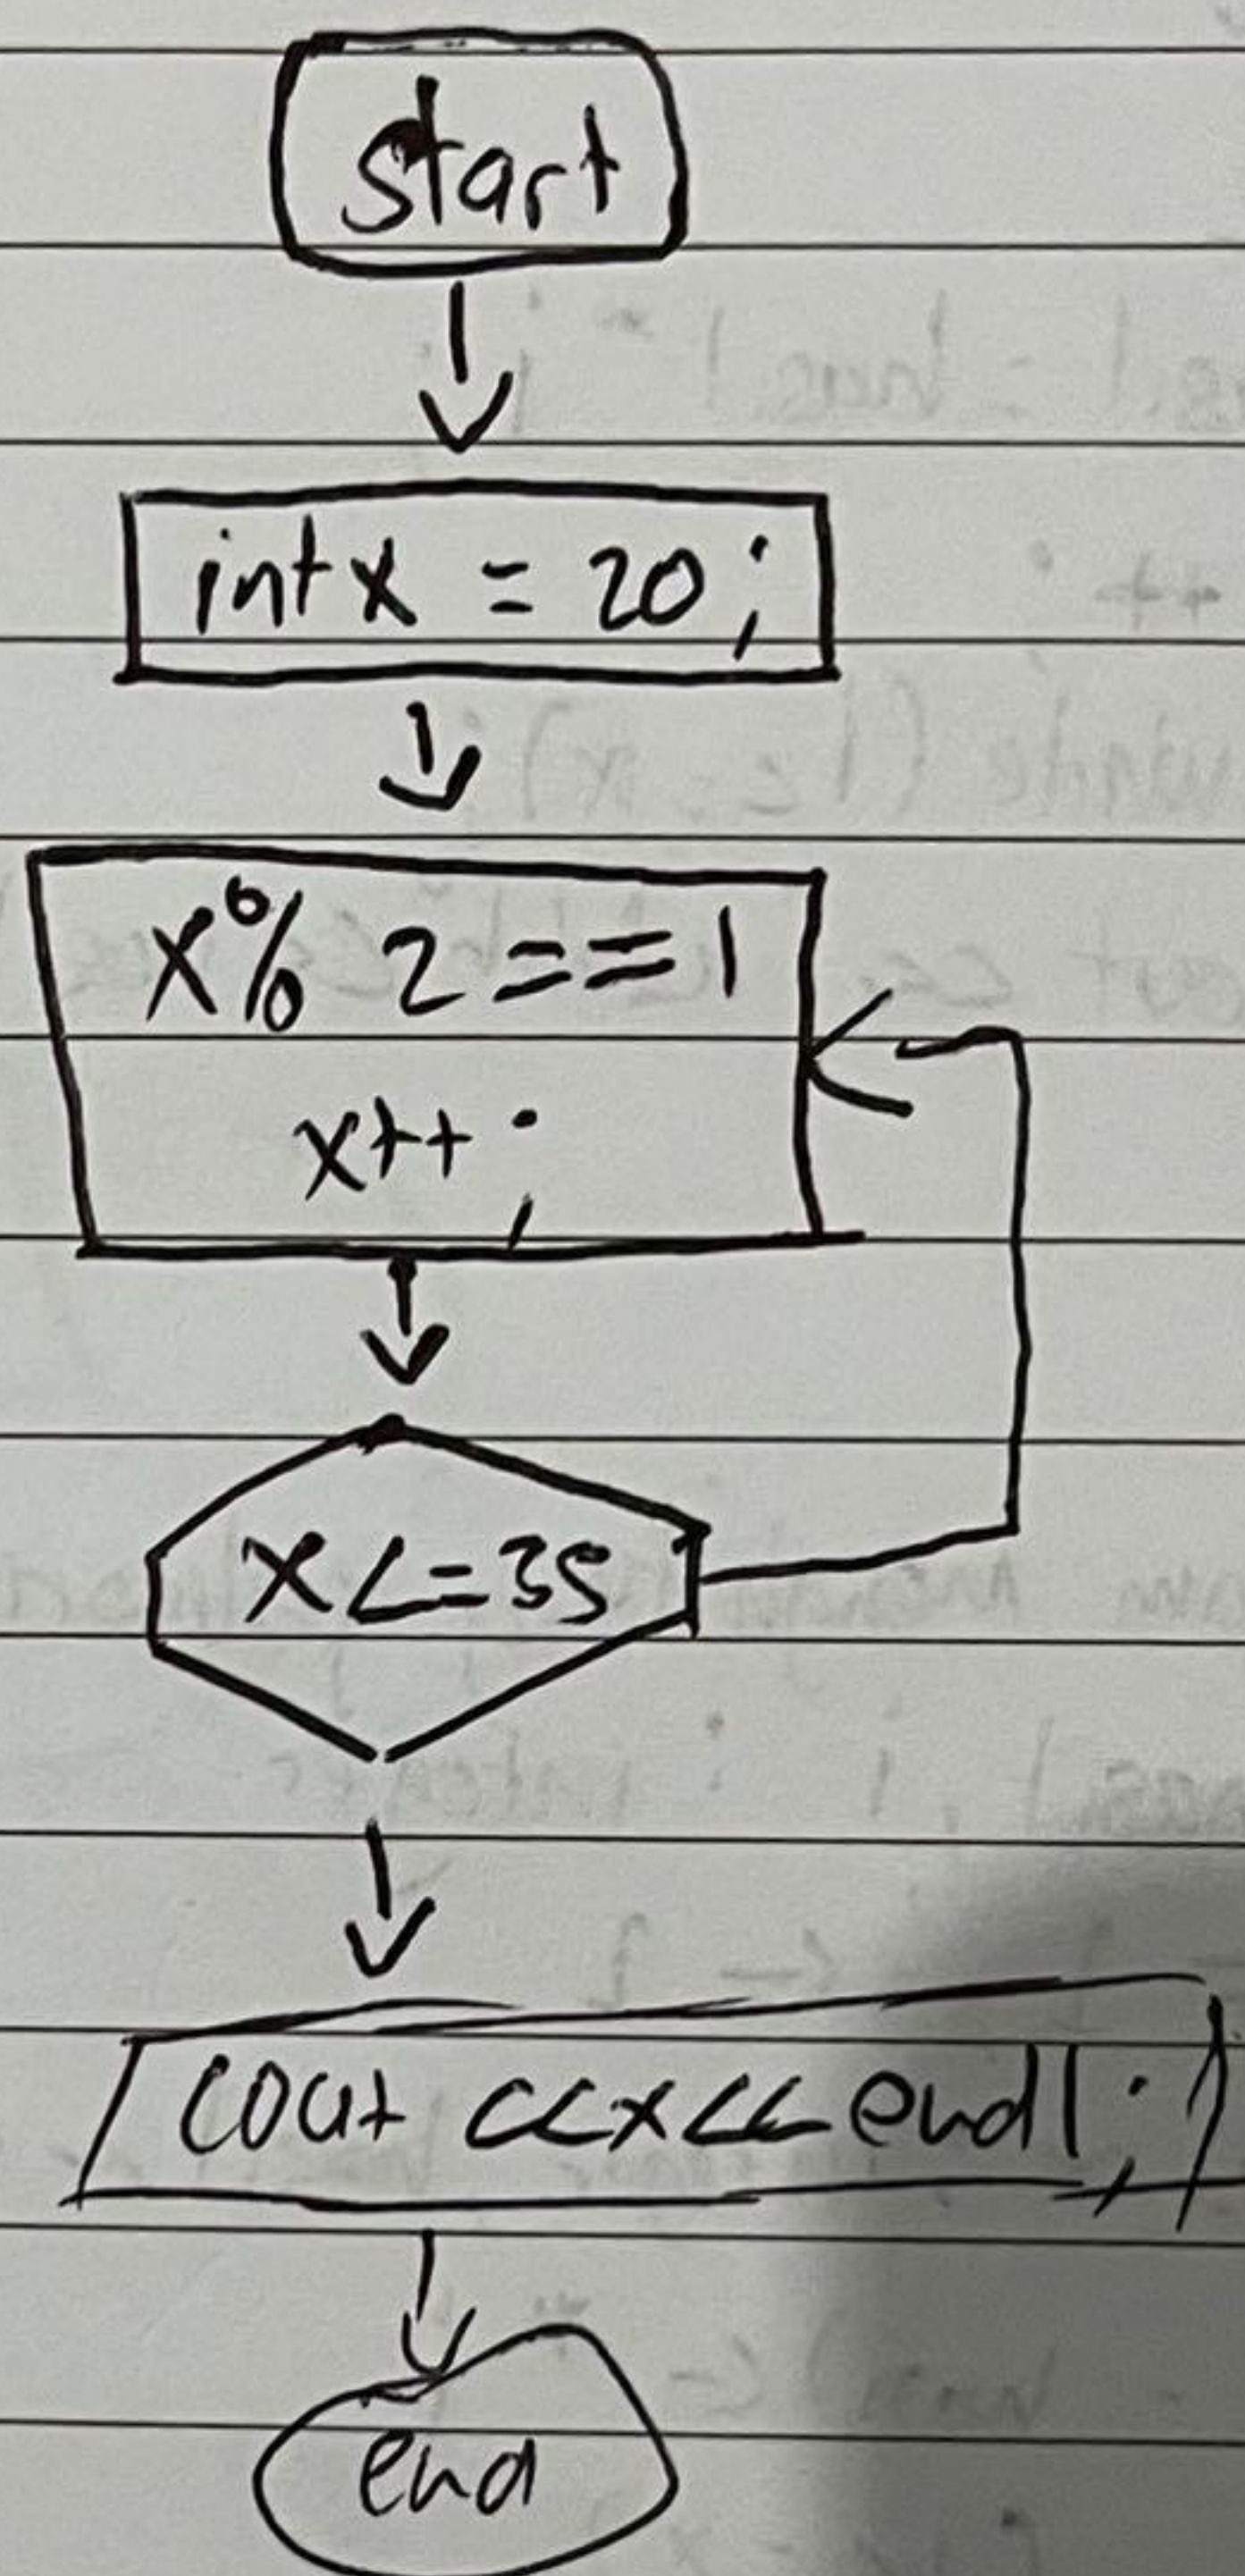 start
int x = 20;
x % 2 == 1
x++;
x <= 35
cout << x << endl;
end